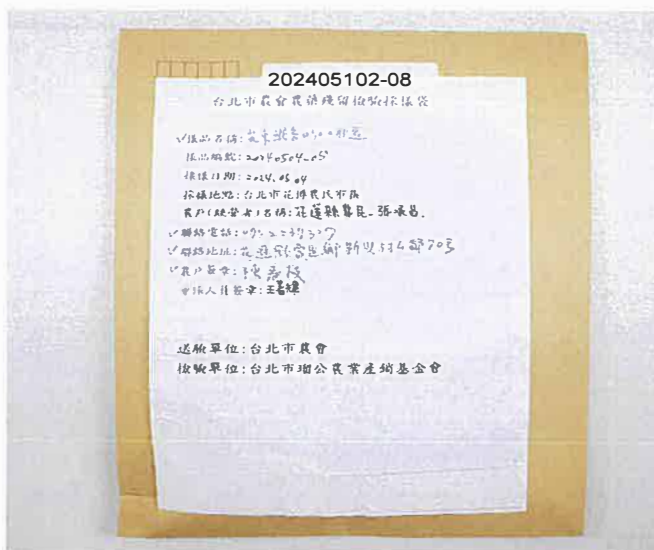 202405102-08
台北市農會農藥殘留檢驗採樣袋
✓樣品名稱:
樣品編號: 20240504-05
採樣日期: 2024.05.04
採樣地點: 台北市花博農民市集
農戶(經營者)名稱: 花蓮縣農民-張承昌.
✓聯絡電話:
✓聯絡地址: 花蓮縣富里鄉新興村
✓農戶簽章:
會採人員簽章: 王
送驗單位: 台北市農會
檢驗單位: 台北市瑠公農業產銷基金會